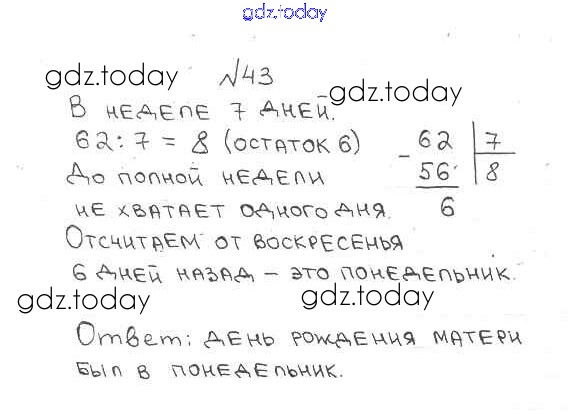 gdz.today
gdz.today №43 gdz.today
В неделе 7 дней.
62 : 7 = 8 (остаток 6)
До полной недели
не хватает одного дня.
- 62 7
56 8
6
Отсчитаем от воскресенья
6 дней назад – это понедельник.
gdz.today gdz.today
Ответ: день рождения матери
был в понедельник.